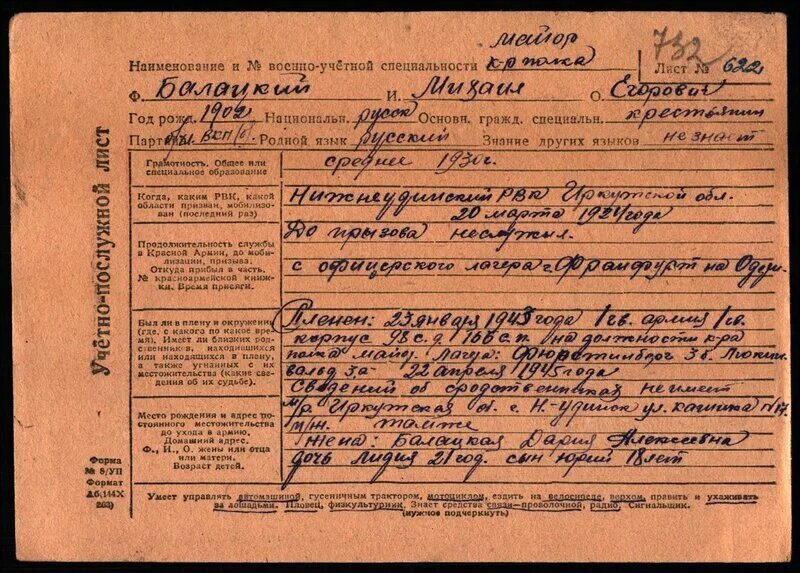 майор
732
Наименование и № военно-учётной специальности к-р полка
Лист № 622
Ф. Балацкий И. Михаил О. Егорович
Год рожд. 1902 Национальн. русск Основн. гражд. специальн. крестьянин
Партийн. ВКП/б/ Родной язык русский Знание других языков не знает
Учётно-послужной лист
Грамотность. Общее или
специальное образование
среднее 1930г.
Когда, каким РВК, какой
области призван, мобилизован
(последний раз)
Нижнеудинский РВК Иркутской обл.
20 марта 1924 года
Продолжительность службы
в Красной Армии, до мобилизации,
призыва.
Откуда прибыл в часть,
№ красноармейской книжки.
Время присяги.
До призыва не служил.
с офицерского лагеря г. Франфурт на Одере
Был ли в плену и окружении
(где, с какого по какое время).
Имеет ли близких родственников,
находящихся
или находящихся в плену,
а также угнанных с их
местожительства (какие сведения
об их судьбе).
Пленен: 23 января 1943 года 1 гв. армия 1 гв.
корпус 98 с.д. 166 с.п. на должности к-ра
полка майор. Лагеря: Фюрстинберг 3б. Люкин
вальд 3а- 22 апреля 1945 года
Сведений об сродственниках не имеет
Место рождения и адрес постоянного
местожительства
до ухода в армию.
Домашний адрес.
Ф., И., О. жены или отца
или матери.
Возраст детей.
м/р. Иркутская об. г. Н-удинск ул. кашика №17.
м/ж. тамже
жена: Балацкая Дария Алексеевна
дочь Лидия 21 год. сын Юрий 18 лет
Форма
№ 8/УП
Формат
А6(144Х
203)
Умеет управлять автомашиной, гусеничным трактором, мотоциклом, ездить на велосипеде, верхом, править и ухаживать
за лошадьми. Пловец, физкультурник. Знает средства связи—проволочной, радио. Сигнальщик.
(нужное подчеркнуть)